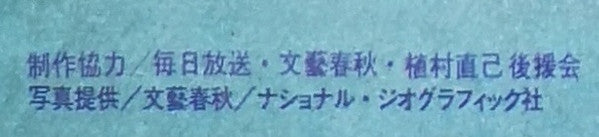 制作協力／毎日放送・文藝春秋・植村直己後援会
写真提供／文藝春秋／ナショナル・ジオグラフィック社